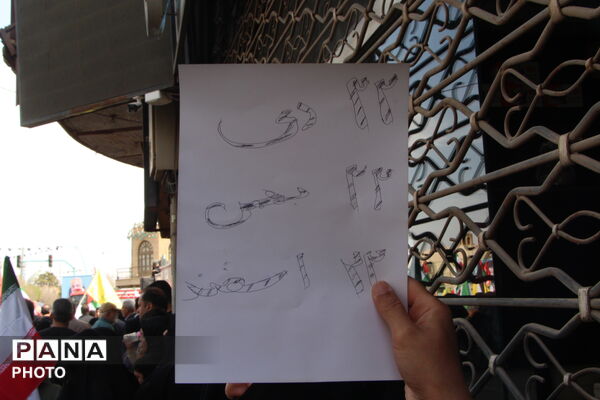 ۲۲ دی
۲۲ بهمن
۲۲ اسفند
PANA
PHOTO